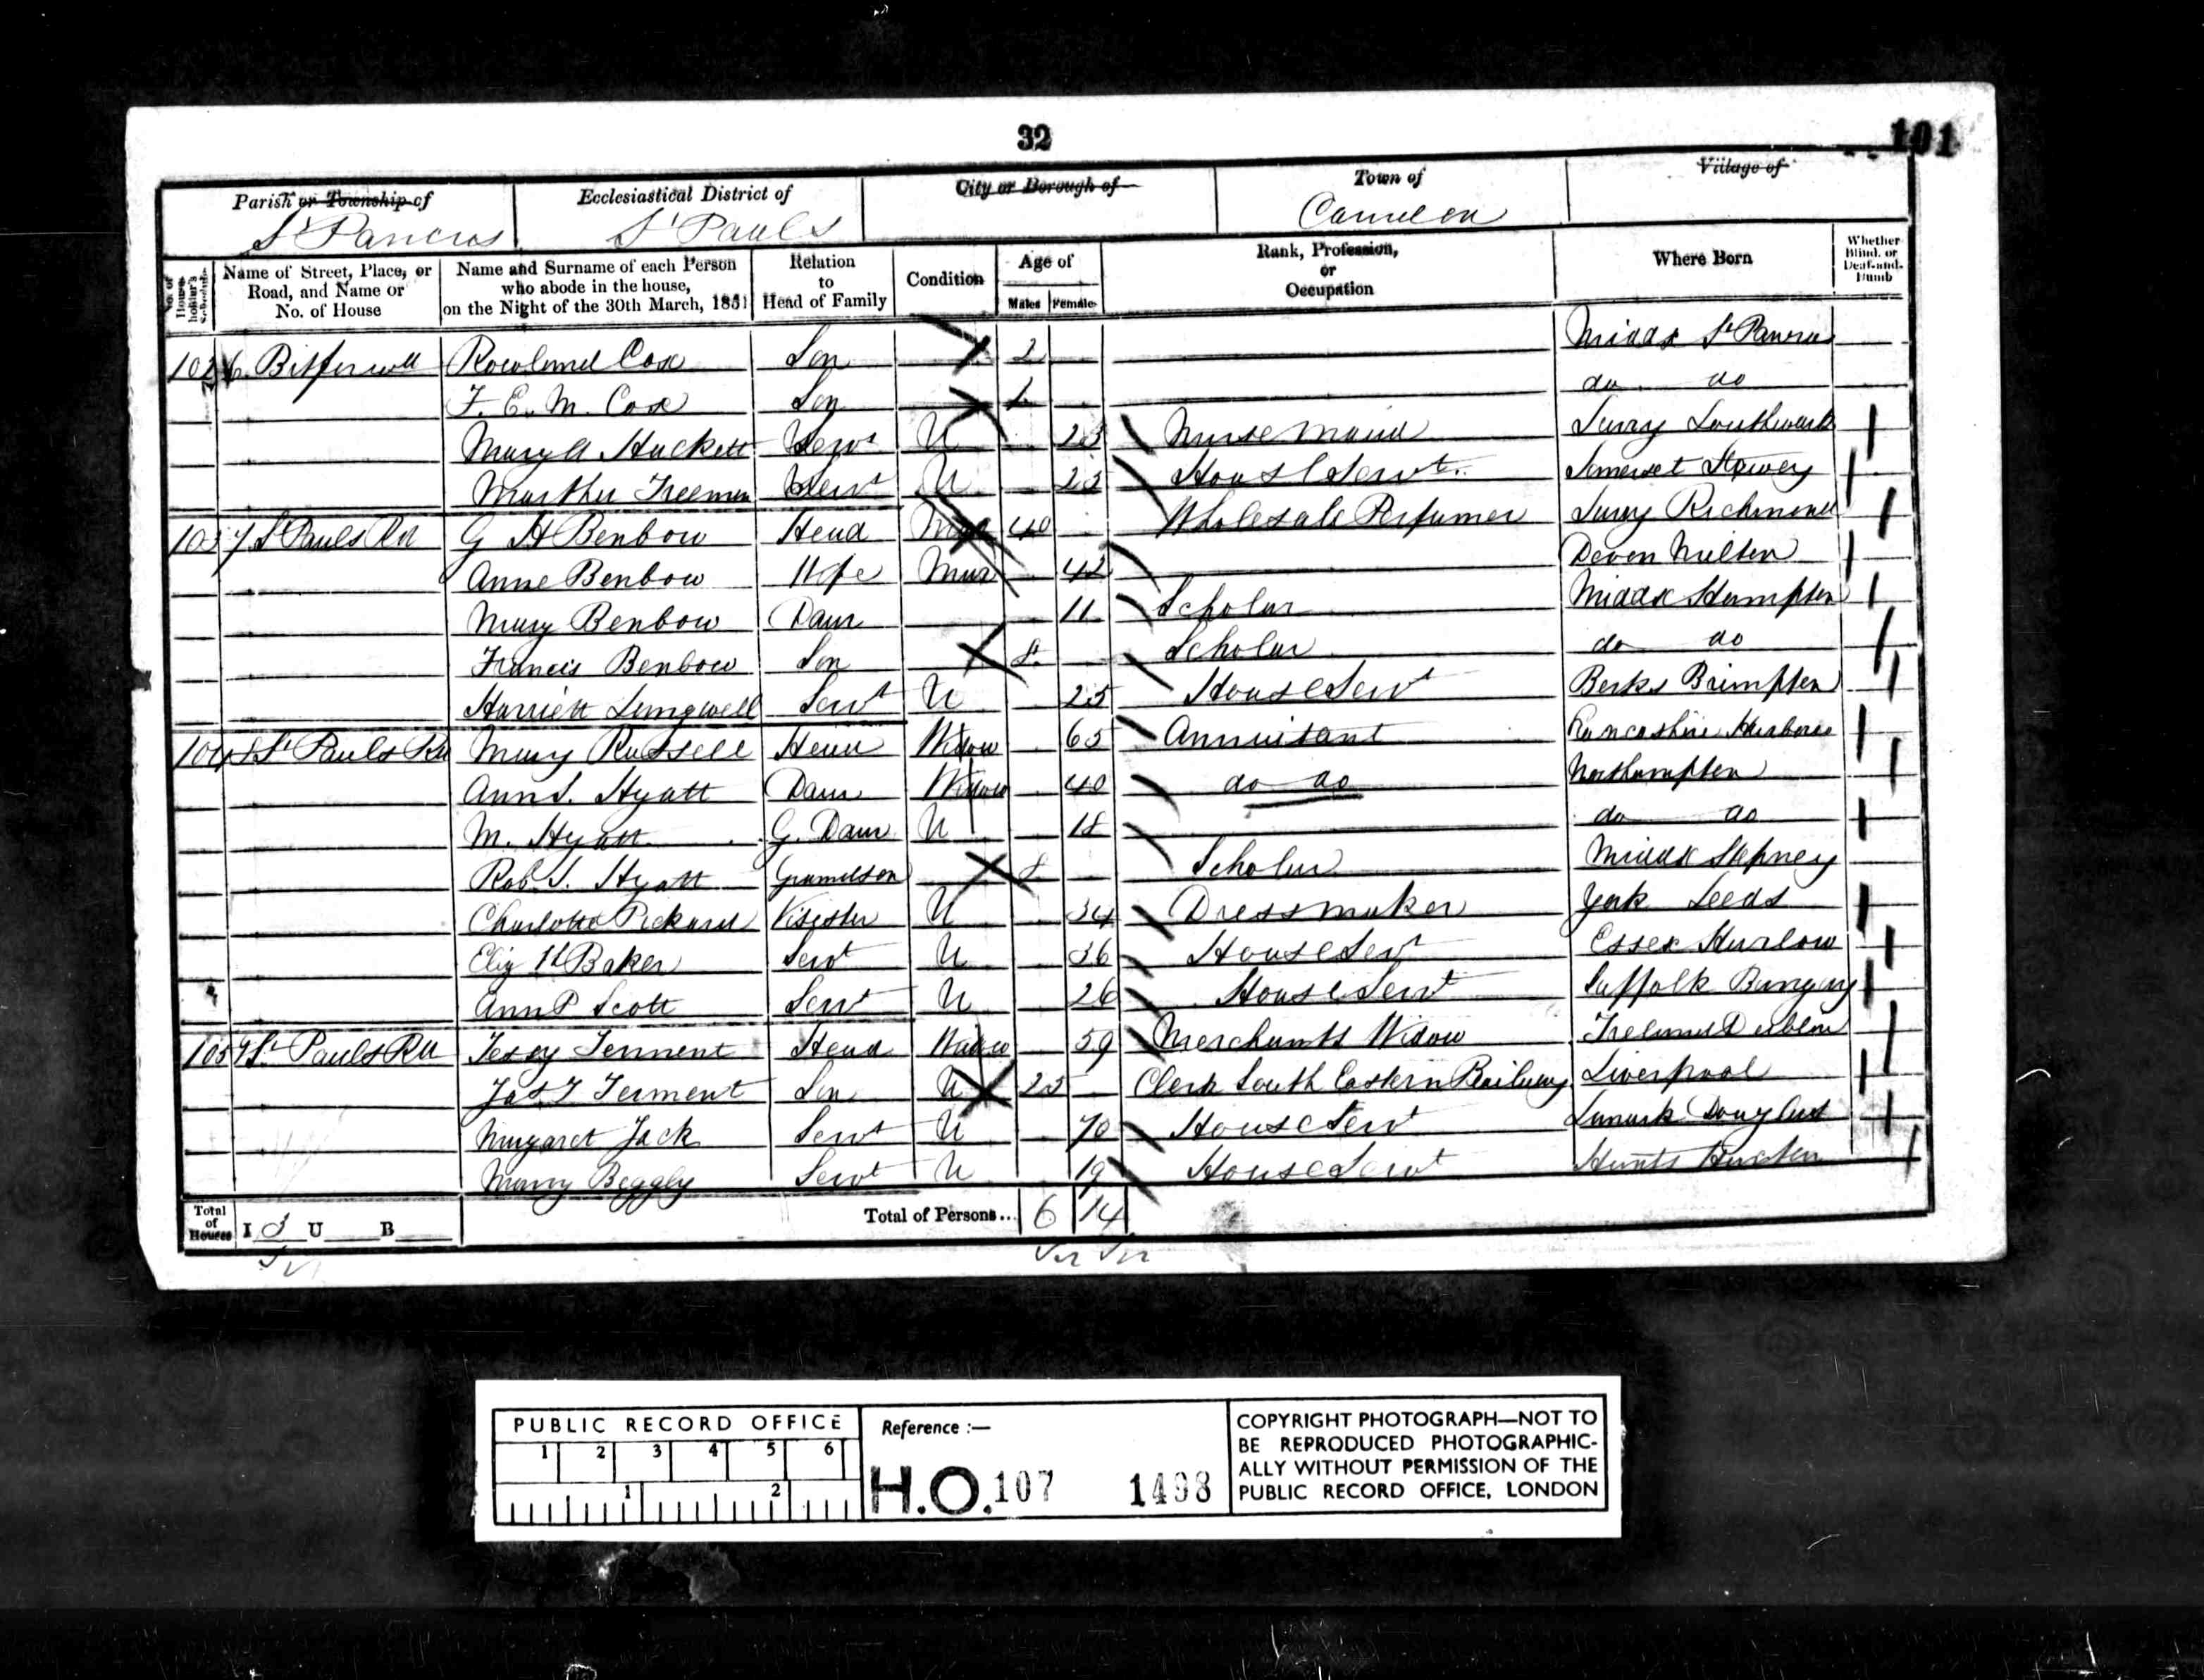 32
101
Parish or Township of
Ecclesiastical District of
City or Borough of
Town of
Village of
St Pancras
St Pauls
Camden
No. of House-holder's Schedule
Name of Street, Place, or Road, and Name or No. of House
Name and Surname of each Person who abode in the house, on the Night of the 30th March, 1851
Relation to Head of Family
Condition
Age of
Males Females
Rank, Profession, or Occupation
Where Born
Whether Blind, or Deaf-and-Dumb
102 6 Rowland Cox Son 2 Middx St Pancras
F. E. M. Cox Son 1 do do
Mary A Huckett Servt U 23 Nurse Maid Surry Southwark
Martha Freeman Servt U 23 House Servt Somerset
103 7 St Pauls Rd G H Benbow Head Mar 40 Wholesale Perfumer Surry Richmond
Anne Benbow Wife Mar 42 Devon Milton
Mary Benbow Daur 11 Scholar Middx Hampton
Francis Benbow Son 8 Scholar do do
Harriett Servt U 25 House Servt Berks Brimpton
104 8 St Pauls Rd Mary Russell Head Widow 65 Annuitant
Ann S. Hyatt Daur Widow 40 do do Northampton
M. Hyatt G. Daur U 18 do do
Rob. S. Hyatt Grandson 8 Scholar Middx Stepney
Charlotte Pickard Visister U 34 Dressmaker York Leeds
Eliz H Baker Servt U 36 House Servt Essex Harlow
Ann P Scott Servt U 26 House Servt Suffolk Bungay
105 9 St Pauls Rd Tennent Head Widow 59 Merchants Widow Ireland Dublin
Jas T Tennent Son U 25 Clerk South Eastern Railway Liverpool
Margaret Jack Servt U 70 House Servt Lanark Douglas
Mary Beggley Servt U 19 House Servt
Total of Houses I 3 U B
Total of Persons... 6 14
PUBLIC RECORD OFFICE
1 2 3 4 5 6
1 2
Reference :—
H.O. 107 1498
COPYRIGHT PHOTOGRAPH—NOT TO
BE REPRODUCED PHOTOGRAPHIC-
ALLY WITHOUT PERMISSION OF THE
PUBLIC RECORD OFFICE, LONDON